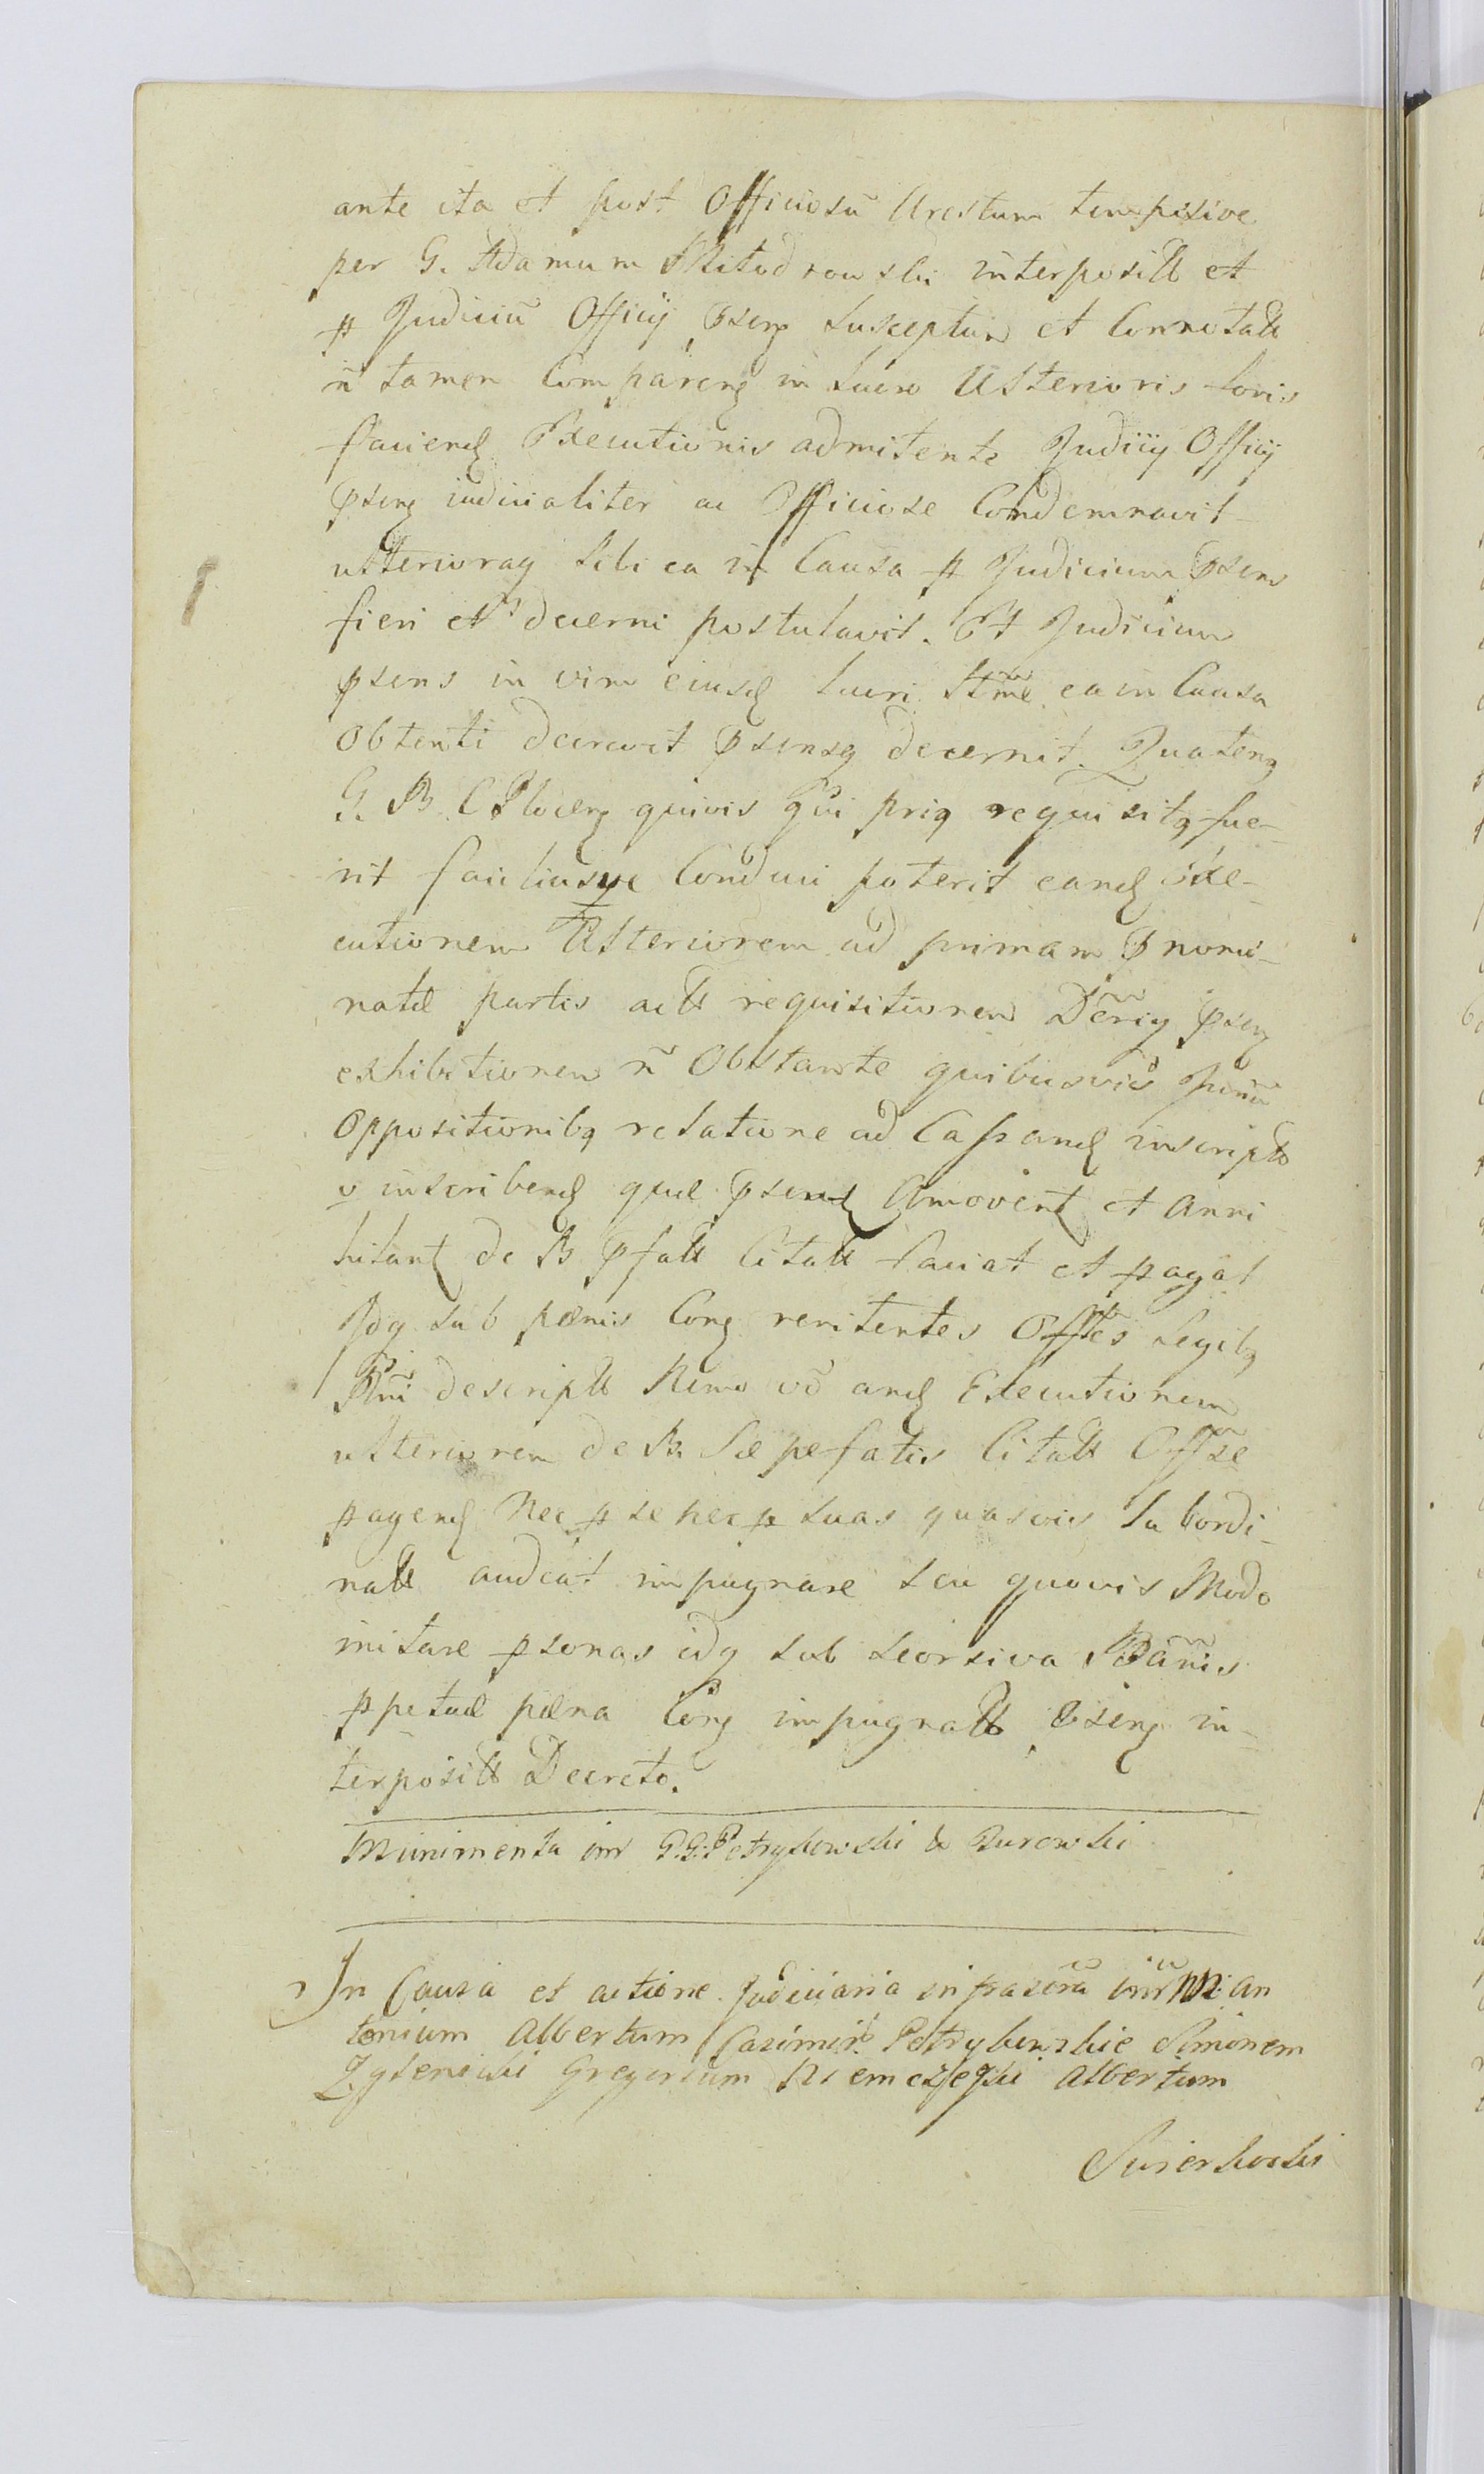 ante ita et post Officiosũ Arestum tempesive
per G. Adamum Mitodrowski interposiħ et
ꝑ Judiciũ Officÿ pseng susceptum et Connotaħ
ñ tamen Compareng in lucro Ulterioris lori
faciend Executionis admitente Judicÿ Officÿ
pseng iudicialiter ac Officiose Condemnavit
ulterioraq sibi ea in Causa ꝑ Judicium psens
fieri et decerni postulavit. Et Judicium
psens in vim eiusd lucri ea in Causa
Obtenti decrevit psensq decernit. Quateng
G. M. C Ploceng quivis qui priq requisitq fue-
rit faciliusve Conduci poterit eand Exe-
cutionem Ulteriorem ad primam pnomi-
natæ partis acħ requisitionem Decr̃iq pseng
exhibitionem ñ Obstante quibusvis
Oppositionibq relatione ad Cassand inscripħ
v inscribend quæ psend Amovent et Anni
hilant de B pfaħ Citaħ faciat et ꝑagat
Idq sub pœnis Cong renitentes Offles Legibq
descripħ Nemo vð and Executionem
ulteriorem de B. Sæpefatis Citaħ Offse
ꝑagend Nec ꝑ se nec ꝑ suas quasvis subordi-
naħ audeat impugnare seu quovis Modo
initare ꝑsonas idq sub seorsiva Bañis
ꝑpetuæ pœna Cong impugnaħ pseng in-
terposiħ Decreto.
Munimenta inr G.G. Petrykowski & Zurowski
In Causa et actione Judiciaria infrascra inr M. An
tonium Albertum Casimir. Petrykowskie Simonem
Gregorium Niemczeski Albertum
Swierkoski